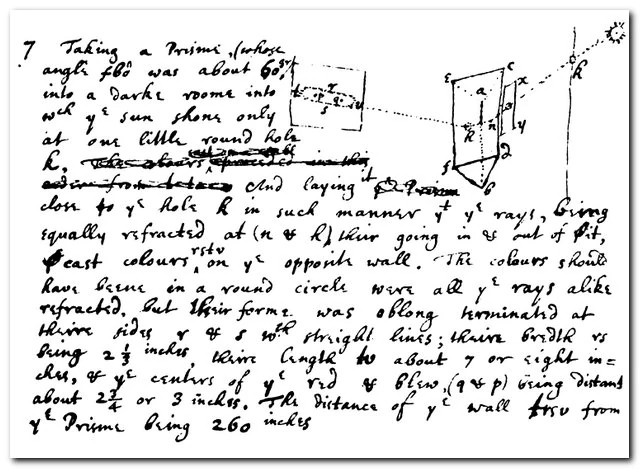 7 Taking a Prisme, (whose
angle fbd was about 60gr)
into a darke roome into
wch ye sun shone only
at one little round hole
k. The colours in this
order from And laying it Prisme
close to ye hole k in such manner yt ye rays, being
equally refracted at (n & h) their going in & out of it,
cast colours rstv on ye opposite wall. The colours should
have beene in a round circle were all ye rays alike
refracted, but their forme was oblong terminated at
theire sides r & s wth streight lines; theire bredth rs
being 2 1/3 inches, theire length tv about 7 or eight in=
ches, & ye centers of ye red & blew, (q & p) being distant
about 2 3/4 or 3 inches. The distance of ye wall trsv from
ye Prisme being 260 inches
r
t p q v
s
e c
a x
h n y
f d
b
k